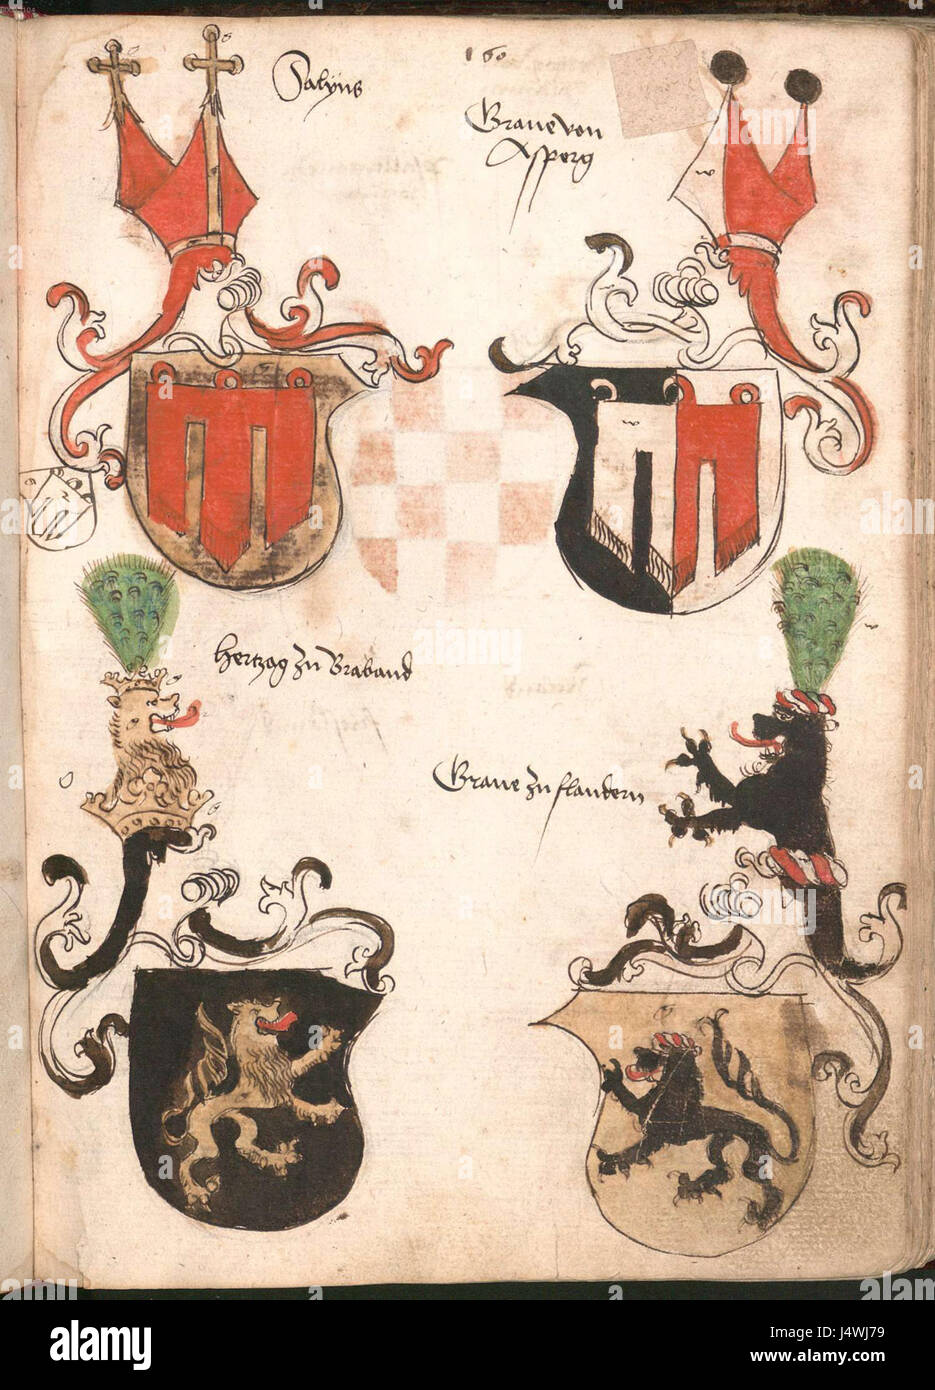 Salyns
160
Graue von
Asperg
hertzog zu Braband
Graue zu flandern
w
w
alamy
Image ID: J4WJ79
www.alamy.com